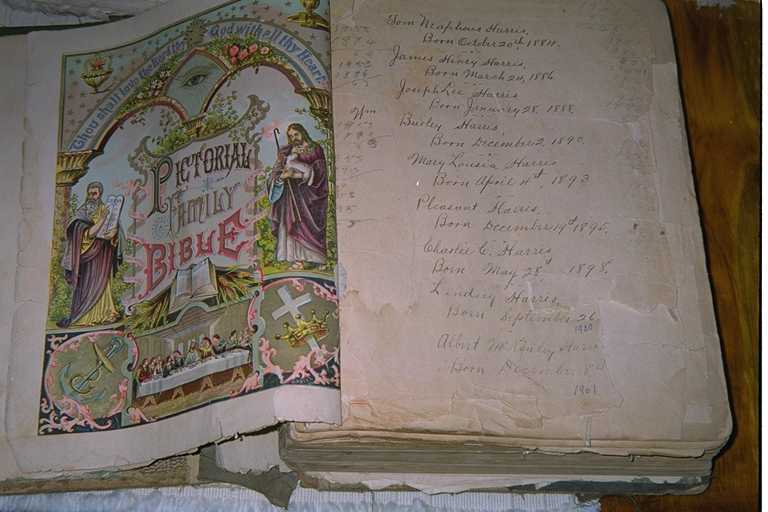 Thou shalt love the
God with all thy Heart.
PICTORIAL
FAMILY
BIBLE
Harris,
Born October 20th 1884.
James Henry Harris,
Born March 24, 1886
Joseph Lee Harris
Born January 28, 1888
Burley Harris,
Born December 2, 1890.
Mary Louisia Harris
Born April 4th 1893
Pleasant Harris,
Born December 19th 1895,
Charlie C. Harris
Born May 28th 1898.
Lindsey Harris,
Born September 26,
1900
Albert Harris
Born December 8
1901